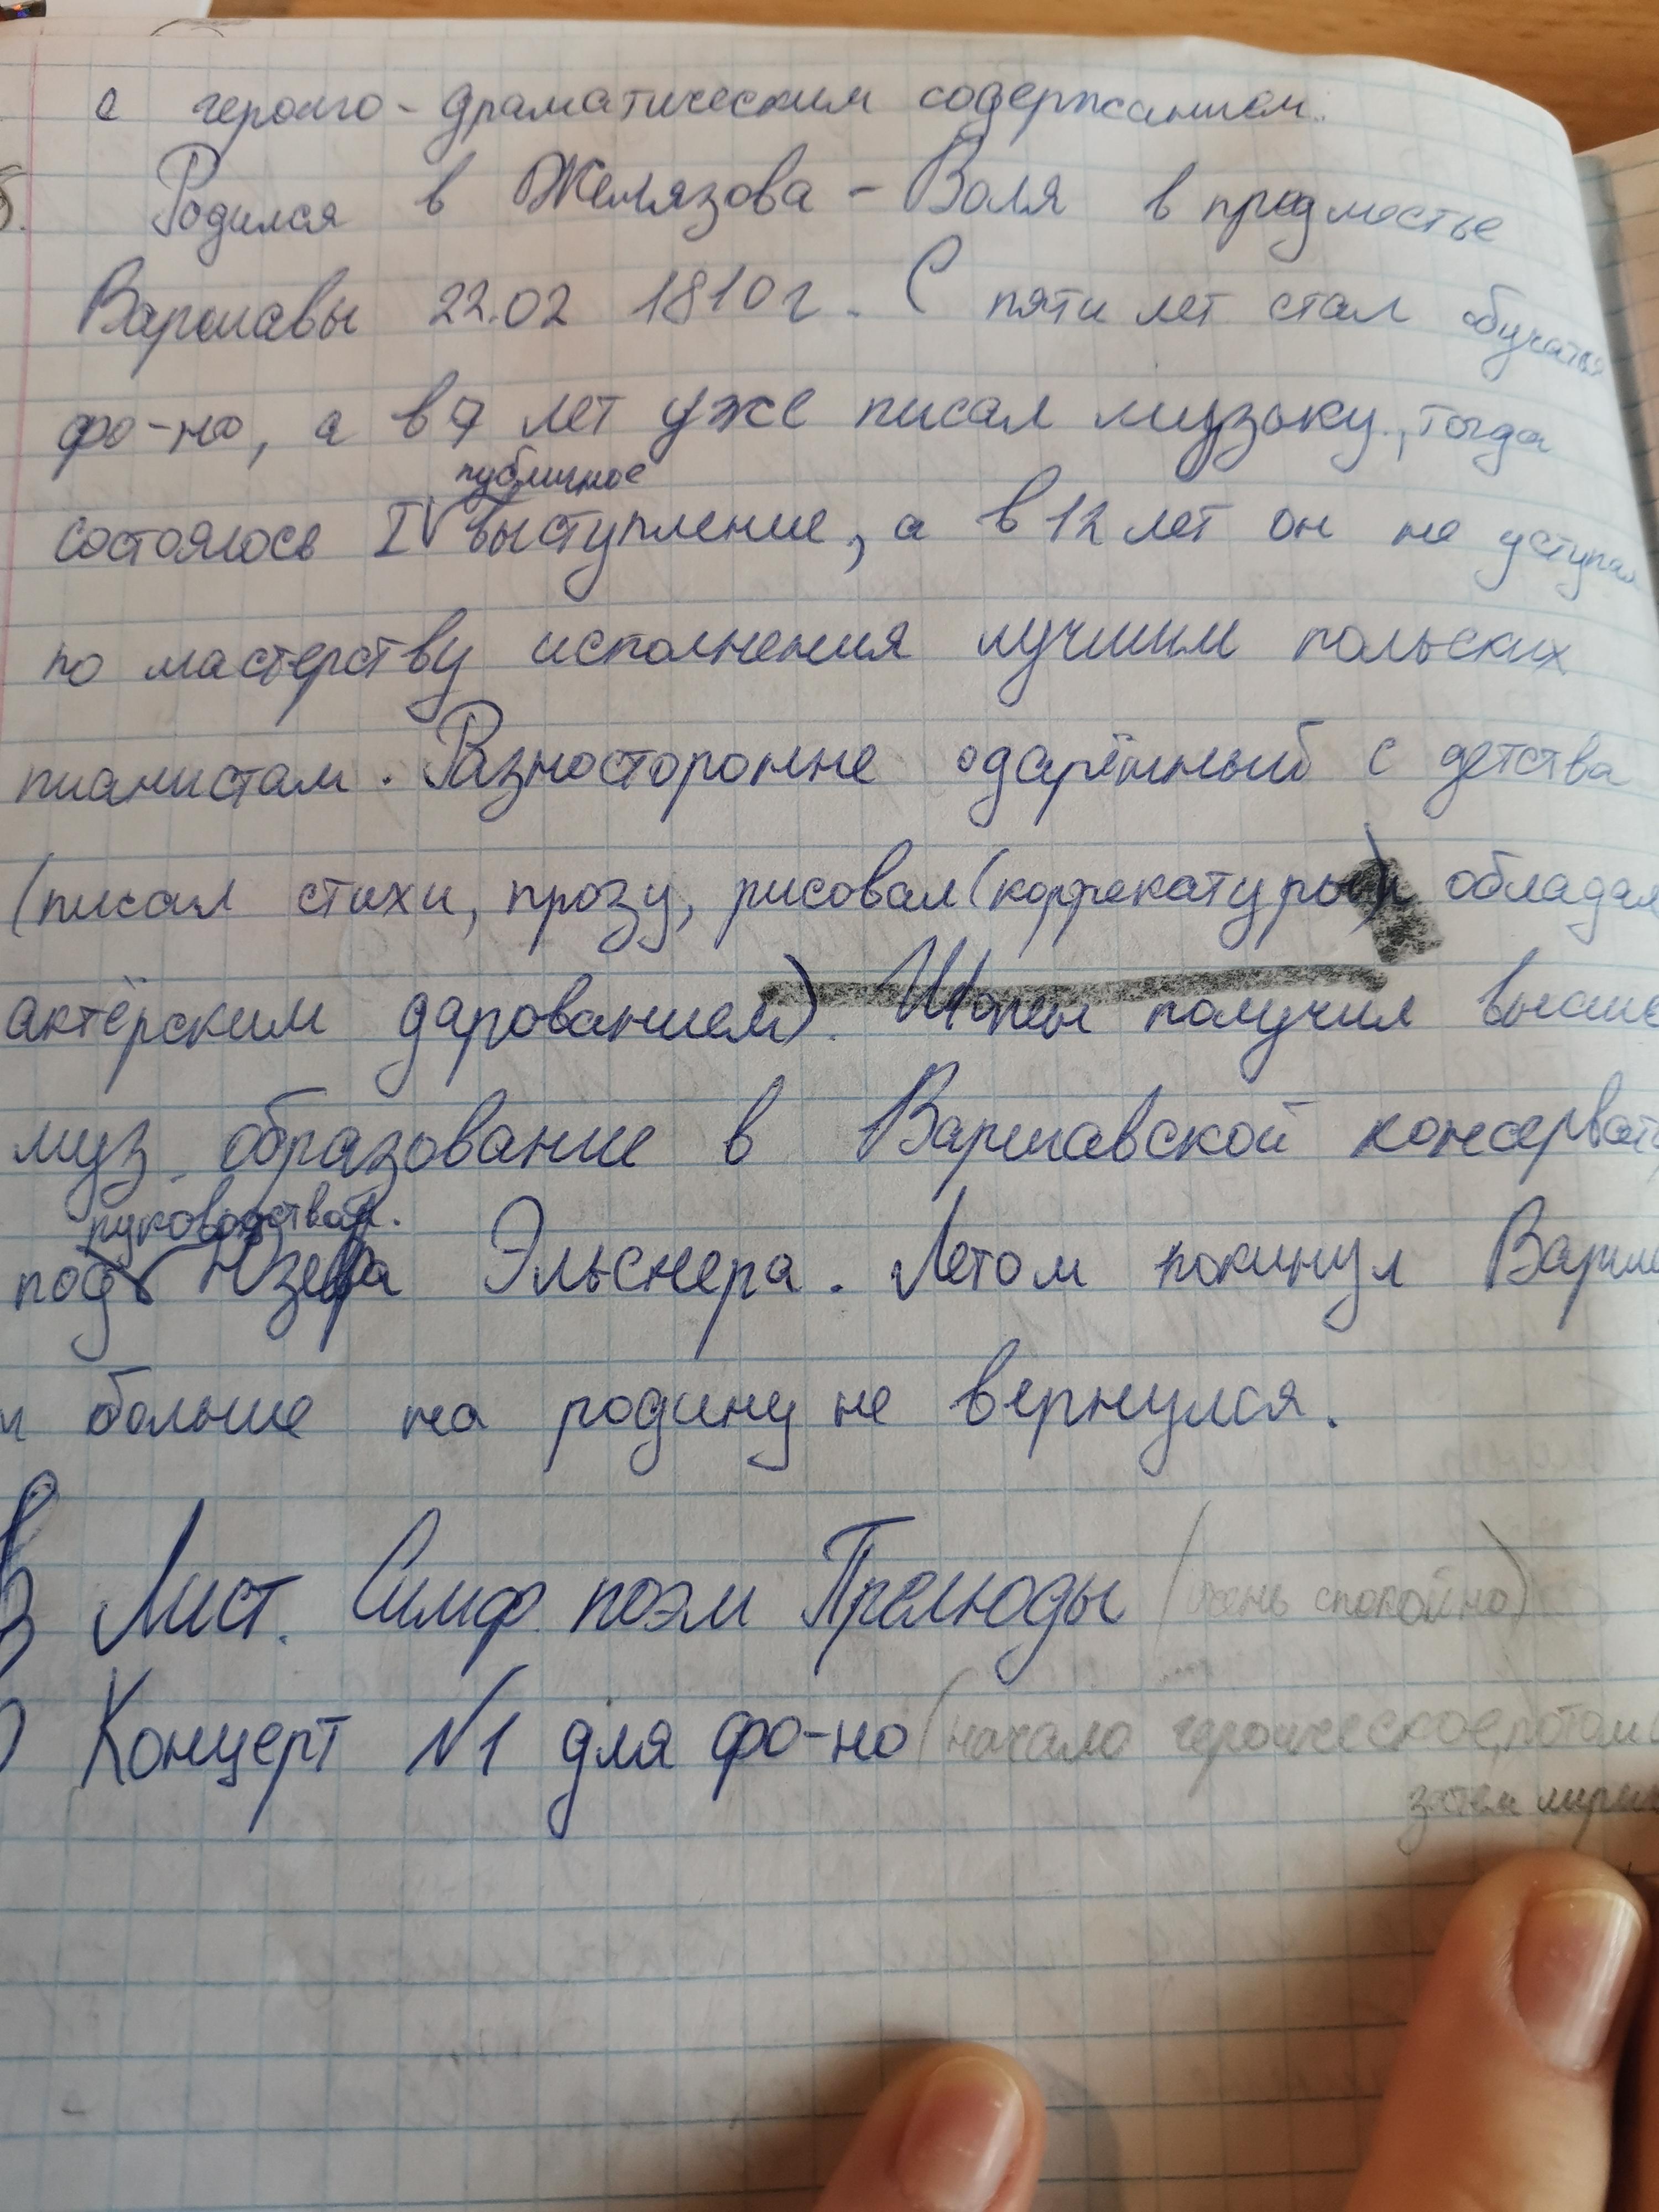 с героико-драматическим содержанием.
Родился в Желязова-Воля в предместье
Варшавы 22.02 1810г. С пяти лет стал обучаться
фо-но, а в 7 лет уже писал музыку, тогда
публичное
состоялось I выступление, а в 12 лет он не уступал
по мастерству исполнения лучшим польских
пианистам. Разносторонне одарённый с детства
(писал стихи, прозу, рисовал (коррекатуры) обладал
актёрским дарованием). Шопен получил высшее
муз. образование в Варшавской консервато
руководством
под Юзефа Эльснера. Летом покинул Варша
и больше на родину не вернулся.
Лист. Симф. поэм Прелюды (очень спокойно)
Концерт №1 для фо-но (начало героическое, потом
затем лирич